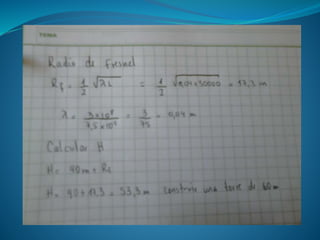 TEMA
Radio de Fresnel
Rf = 1/2 √λL = 1/2 √0,04×30000 = 17,3 m
λ = 3×10⁸/7,5×10⁹ = 3/75 = 0,04 m
Calcular H
H = 40m + Rf
H = 40 + 17,3 = 53,3 m construir una torre de 60m